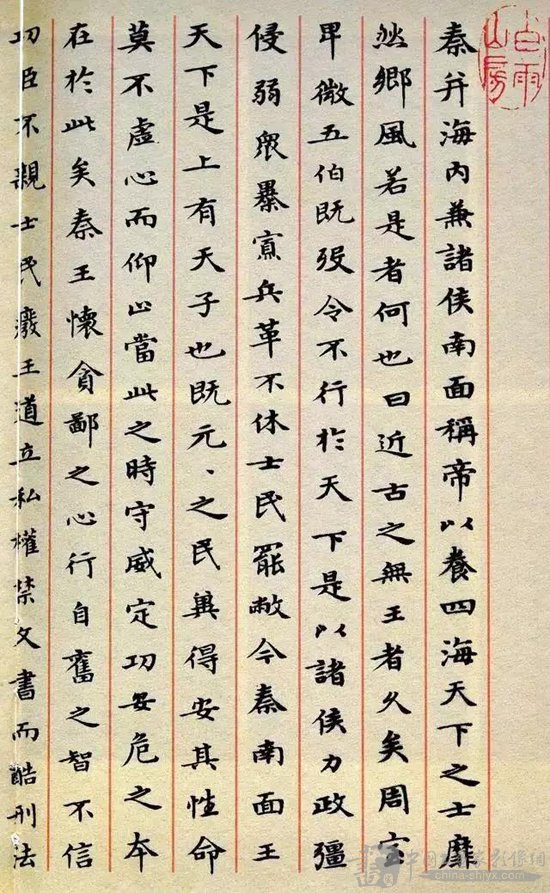 白雨
山房
秦并海内兼諸侯南面稱帝以養四海天下之士靡
然鄉風若是者何也曰近古之無王者久矣周室
卑微五伯既歿令不行於天下是以諸侯力政彊
侵弱眾暴寡兵革不休士民罷敝今秦南面王
天下是上有天子也既元、之民冀得安其性命
莫不虛心而仰上當此之時守威定功安危之本
在於此矣秦王懷貪鄙之心行自奮之智不信
功臣不親士民廢王道立私權禁文書而酷刑法
中国书画家影像網
china-shjyx.com